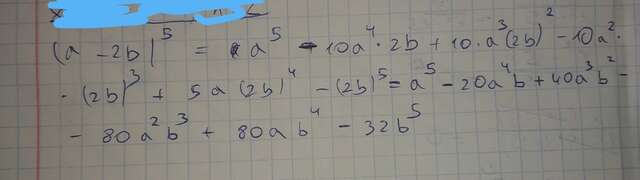 (a - 2b)⁵ = a⁵ - 10a⁴ · 2b + 10 · a³(2b)² - 10a² ·
· (2b)³ + 5a(2b)⁴ - (2b)⁵ = a⁵ - 20a⁴b + 40a³b² -
- 80a²b³ + 80ab⁴ - 32b⁵